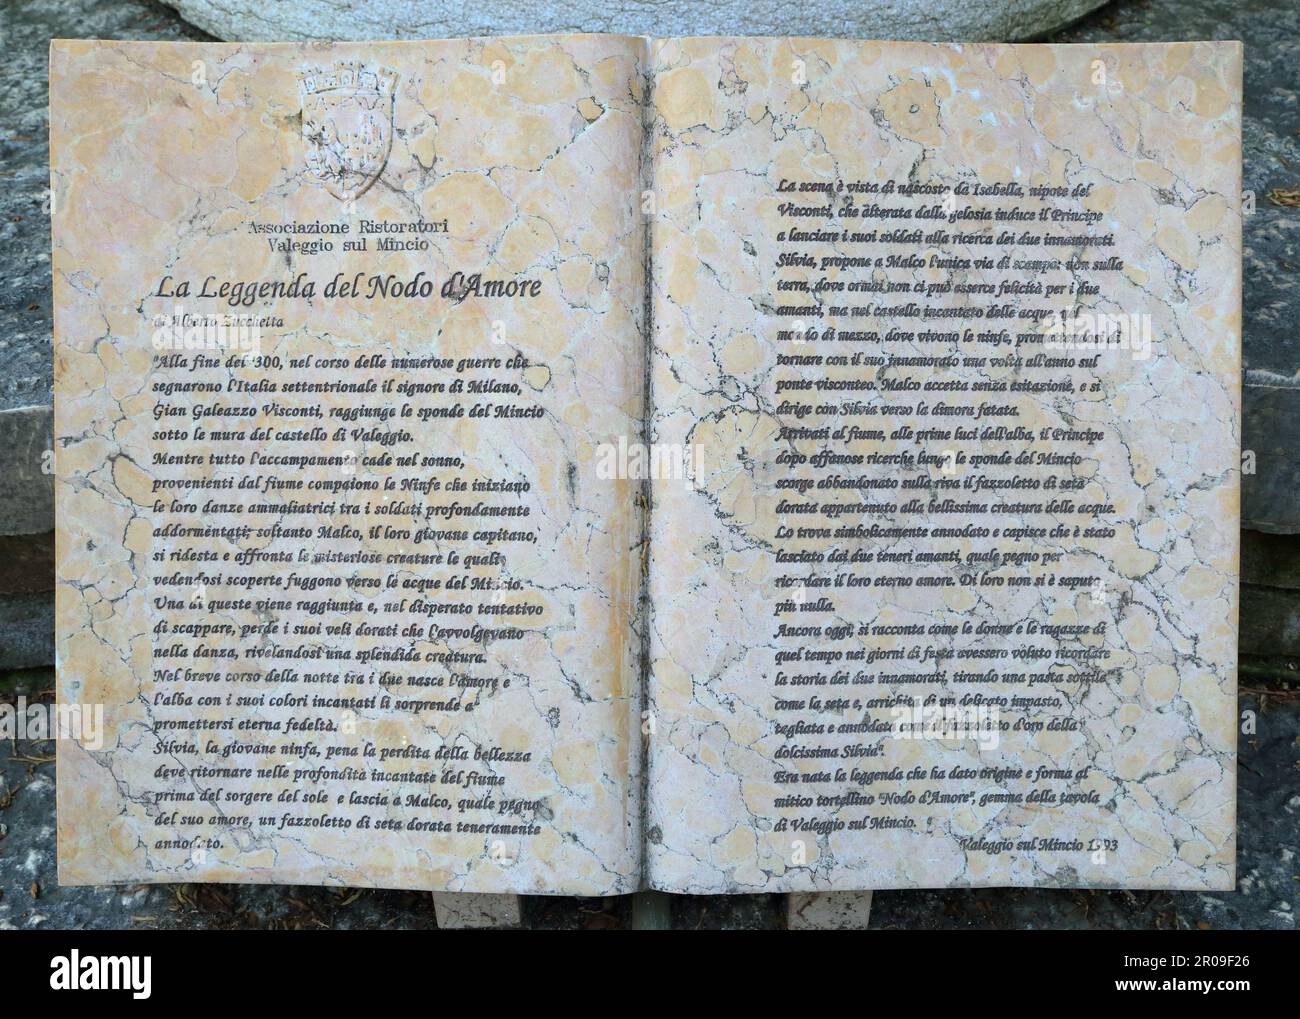 Associazione Ristoratori
Valeggio sul Mincio
La Leggenda del Nodo d'Amore
di Alberto Zucchetta
"Alla fine del '300, nel corso delle numerose guerre che
segnarono l'Italia settentrionale il signore di Milano,
Gian Galeazzo Visconti, raggiunge le sponde del Mincio
sotto le mura del castello di Valeggio.
Mentre tutto l'accampamento cade nel sonno,
provenienti dal fiume compaiono le Ninfe che iniziano
le loro danze ammaliatrici tra i soldati profondamente
addormentati; soltanto Malco, il loro giovane capitano,
si ridesta e affronta le misteriose creature le quali
vedendosi scoperte fuggono verso le acque del Mincio.
Una di queste viene raggiunta e, nel disperato tentativo
di scappare, perde i suoi veli dorati che l'avvolgevano
nella danza, rivelandosi una splendida creatura.
Nel breve corso della notte tra i due nasce l'amore e
l'alba con i suoi colori incantati li sorprende a
promettersi eterna fedeltà.
Silvia, la giovane ninfa, pena la perdita della bellezza
deve ritornare nelle profondità incantate del fiume
prima del sorgere del sole e lascia a Malco, quale pegno
del suo amore, un fazzoletto di seta dorata teneramente
annodato.
La scena è vista di nascosto da Isabella, nipote del
Visconti, che alterata dalla gelosia induce il Principe
a lanciare i suoi soldati alla ricerca dei due innamorati.
Silvia, propone a Malco l'unica via di scampo: non sulla
terra, dove ormai non ci può esserce felicità per i due
amanti, ma nel castello incantato delle acque, nel
mondo di mezzo, dove vivono le ninfe, promettendosi di
tornare con il suo innamorato una volta all'anno sul
ponte visconteo. Malco accetta senza esitazione, e si
dirige con Silvia verso la dimora fatata.
Arrivati al fiume, alle prime luci dell'alba, il Principe
dopo affanose ricerche lungo le sponde del Mincio
scorge abbandonato sulla riva il fazzoletto di seta
dorata appartenuto alla bellissima creatura delle acque.
Lo trova simbolicamente annodato e capisce che è stato
lasciato dai due teneri amanti, quale pegno per
ricordare il loro eterno amore. Di loro non si è saputo
più nulla.
Ancora oggi, si racconta come le donne e le ragazze di
quel tempo nei giorni di festa avessero voluto ricordare
la storia dei due innamorati, tirando una pasta sottile
come la seta e, arrichita di un delicato impasto,
tagliata e annodata come il fazzoletto d'oro della
dolcissima Silvia".
Era nata la leggenda che ha dato origine e forma al
mitico tortellino "Nodo d'Amore", gemma della tavola
di Valeggio sul Mincio.
Valeggio sul Mincio 1993
alamy
Image ID: 2R09F26
www.alamy.com